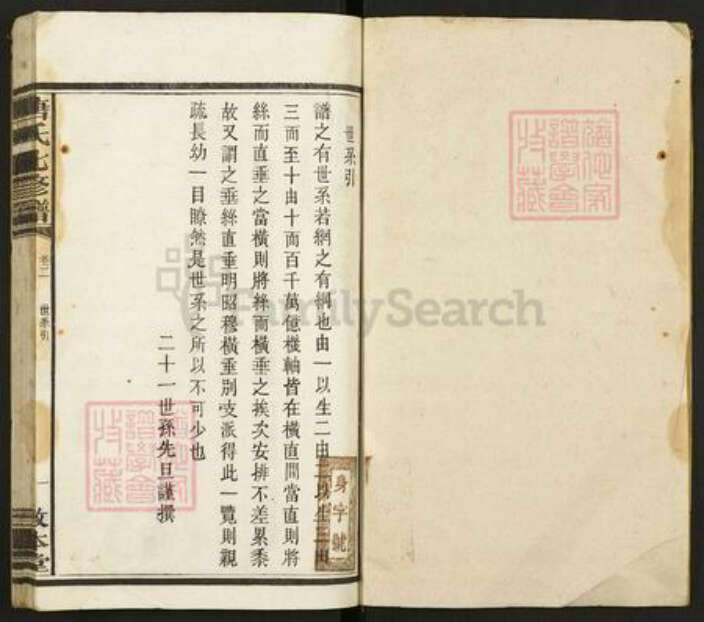 世系引
譜之有世系若網之有綱也由一以生二由二以生三由
三而至十由十而百千萬億樞軸皆在橫直間當直則將
絲而直垂之當橫則將絲而橫垂之挨次安排不差累黍
故又謂之垂絲直垂明昭穆橫垂別支派得此一覽則親
疏長幼一目瞭然是世系之所以不可少也
二十一世孫先旦謹撰
身字號
氏七修譜
卷二
世系引
一
敦本堂
譜學會
收藏
譜學會
收藏
FamilySearch